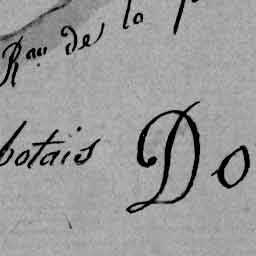 Rau de la
botais Do